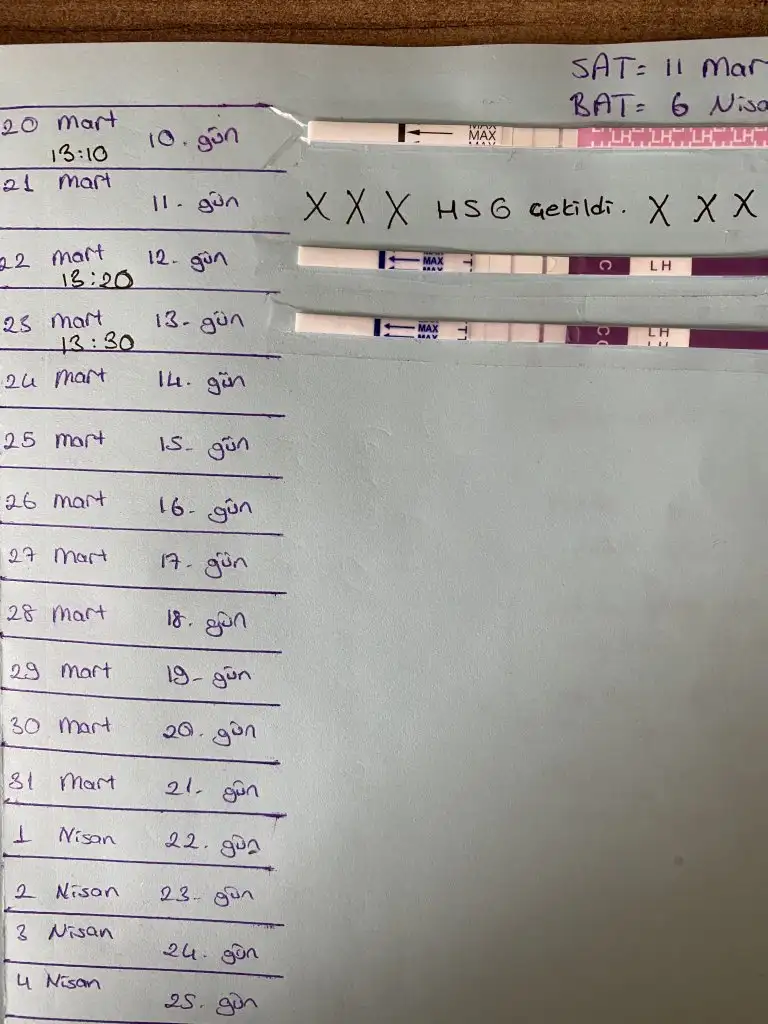 SAT= 11 Mar
BAT= 6 Nisa
20 Mart 10. gün MAX LH LH LH LH
13:10
21 Mart 11. gün X X X HSG Çekildi. X X X
22 Mart 12. gün MAX T C LH
13:20
23 Mart 13. gün MAX T C LH
13:30
24 Mart 14. gün
25 Mart 15. gün
26 Mart 16. gün
27 Mart 17. gün
28 Mart 18. gün
29 Mart 19. gün
30 Mart 20. gün
31 Mart 21. gün
1 Nisan 22. gün
2 Nisan 23. gün
3 Nisan 24. gün
4 Nisan 25. gün